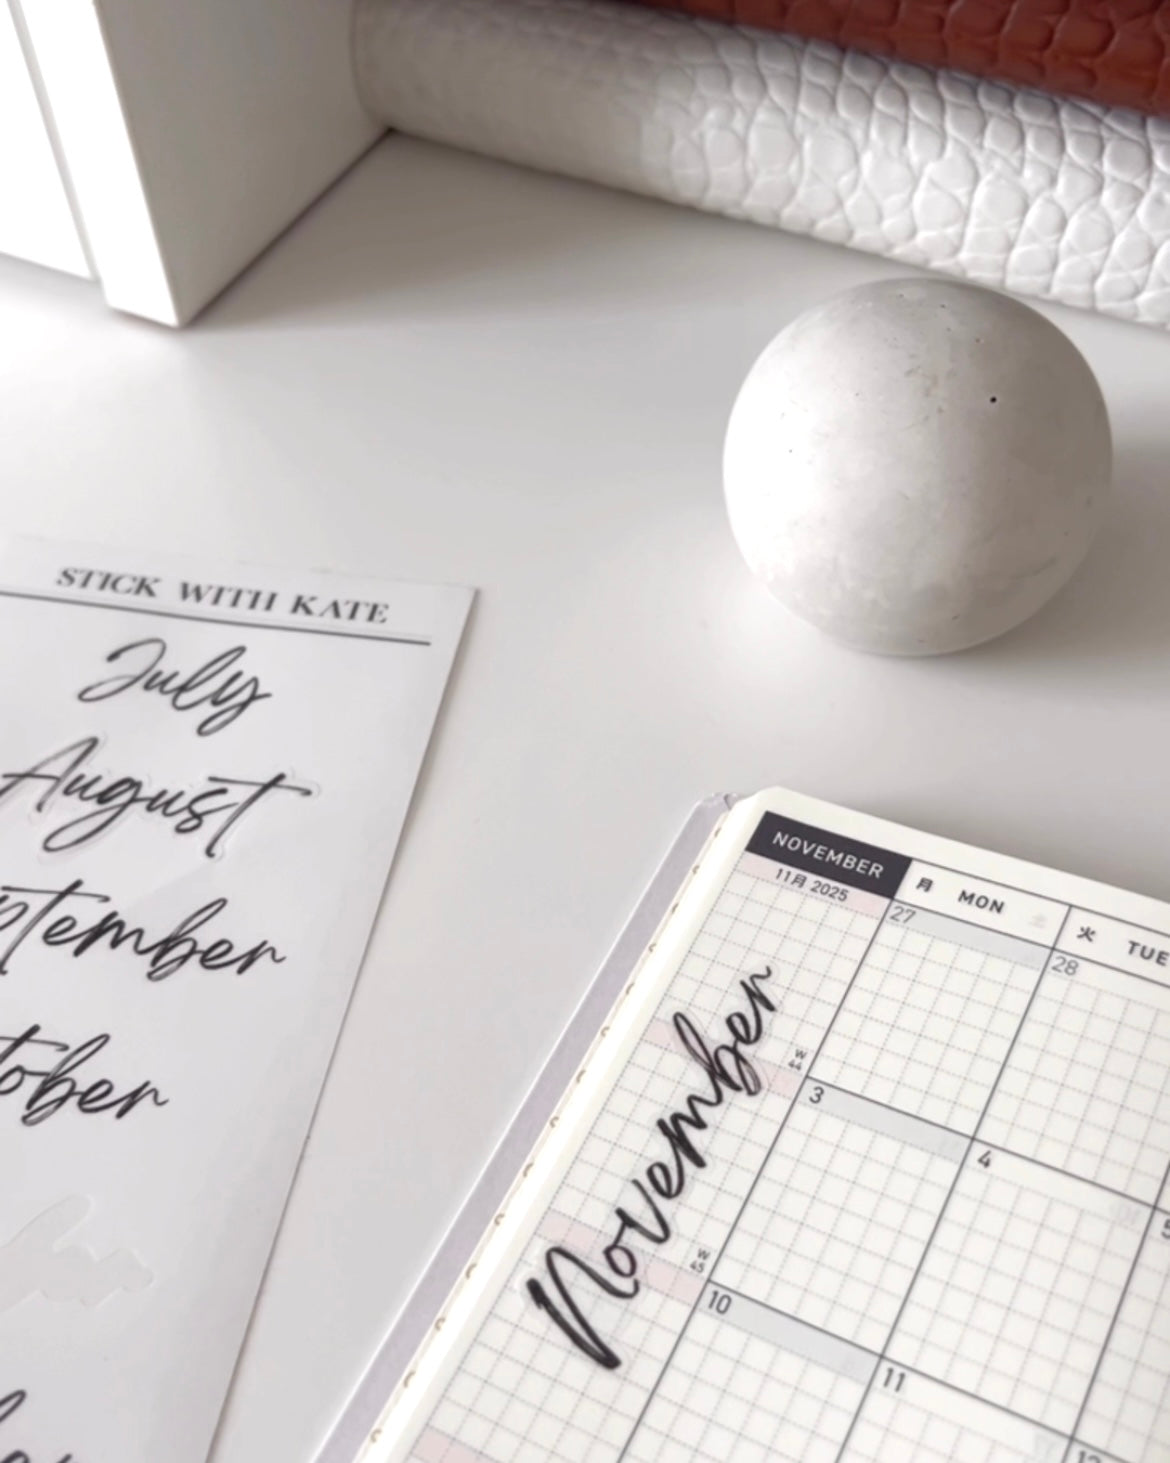 STICK WITH KATE
July
August
ptember
tober
NOVEMBER
11月 2025
月 MON
火 TUE
27
28
November
W
44
3
4
5
W
45
10
11
12